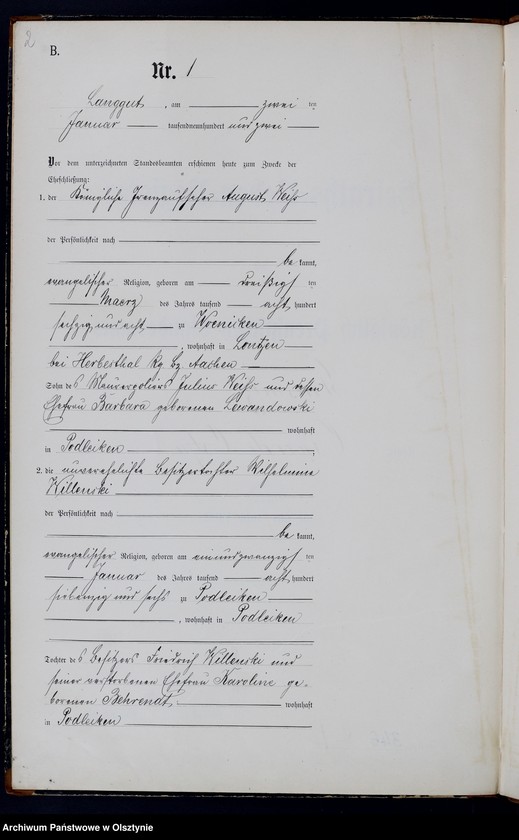 2
B.
Nr. 1
Langgut, am zwei ten
Januar tausendneunhundert und zwei
Vor dem unterzeichneten Standesbeamten erschienen heute zum Zwecke der
Eheschließung:
1. der Königliche Grenzaufseher August Weiß
der Persönlichkeit nach
be kannt,
evangelischer Religion, geboren am dreißigst ten
Maerz des Jahres tausend acht hundert
sechzig und acht zu Woenicken
, wohnhaft in Lontzen
bei Herbesthal Rg. Bz. Aachen
Sohn des Maurerpoliers Julius Weiß und dessen
Ehefrau Barbara geborenen Lewandowski
wohnhaft
in Podleiken,
2. die unverehelichte Besitzertochter Wilhelmine
Willenski
der Persönlichkeit nach
be kannt,
evangelischer Religion, geboren am einundzwanzigst ten
Januar des Jahres tausend acht hundert
siebenzig und sechs zu Podleiken
, wohnhaft in Podleiken
Tochter des Besitzers Friedrich Willenski und
seiner verstorbenen Ehefrau Karoline ge-
borenen Behrendt wohnhaft
in Podleiken
Archiwum Państwowe w Olsztynie